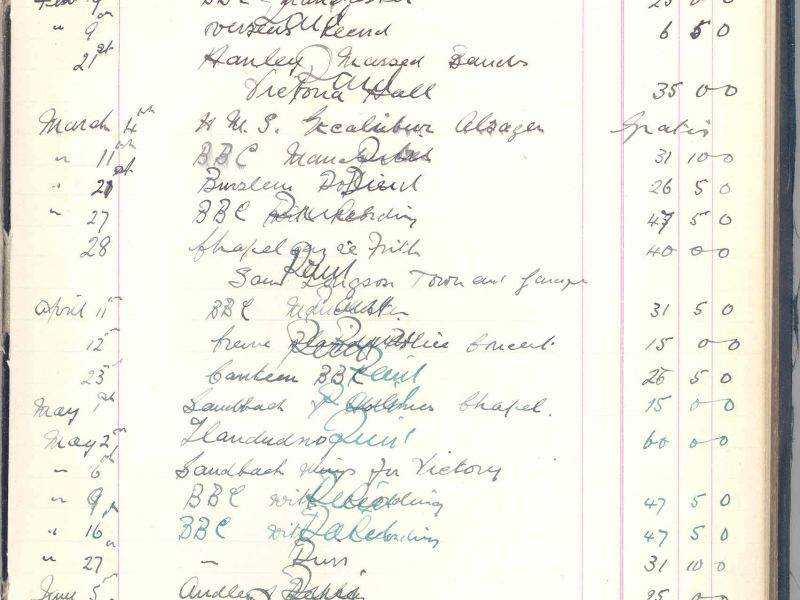 Feb 9 BBC Manchester 25 0 0
" 9 Overseas Record 6 5 0
21st Hanley Massed Bands
Victoria Hall 35 0 0
March 4th H M S. Excalibur Alsager Gratis
" 11th BBC Manchester 31 10 0
" 21st Burslem 26 5 0
" 27 BBC with Recording 47 5 0
28 Chapel en le Frith 40 0 0
Sam Longson Town and
April 11th BBC Manchester 31 5 0
12th Crewe Police Concert 15 0 0
23rd Canteen BBC Paid 26 5 0
May 1st Sandbach Chapel. 15 0 0
May 2nd Llandudno Paid 60 0 0
" 6th Sandbach Wings for Victory
" 9th BBC with Recording 47 5 0
" 16th BBC with Recording 47 5 0
" 27th " 31 10 0
June 5th Audley 25 0 0